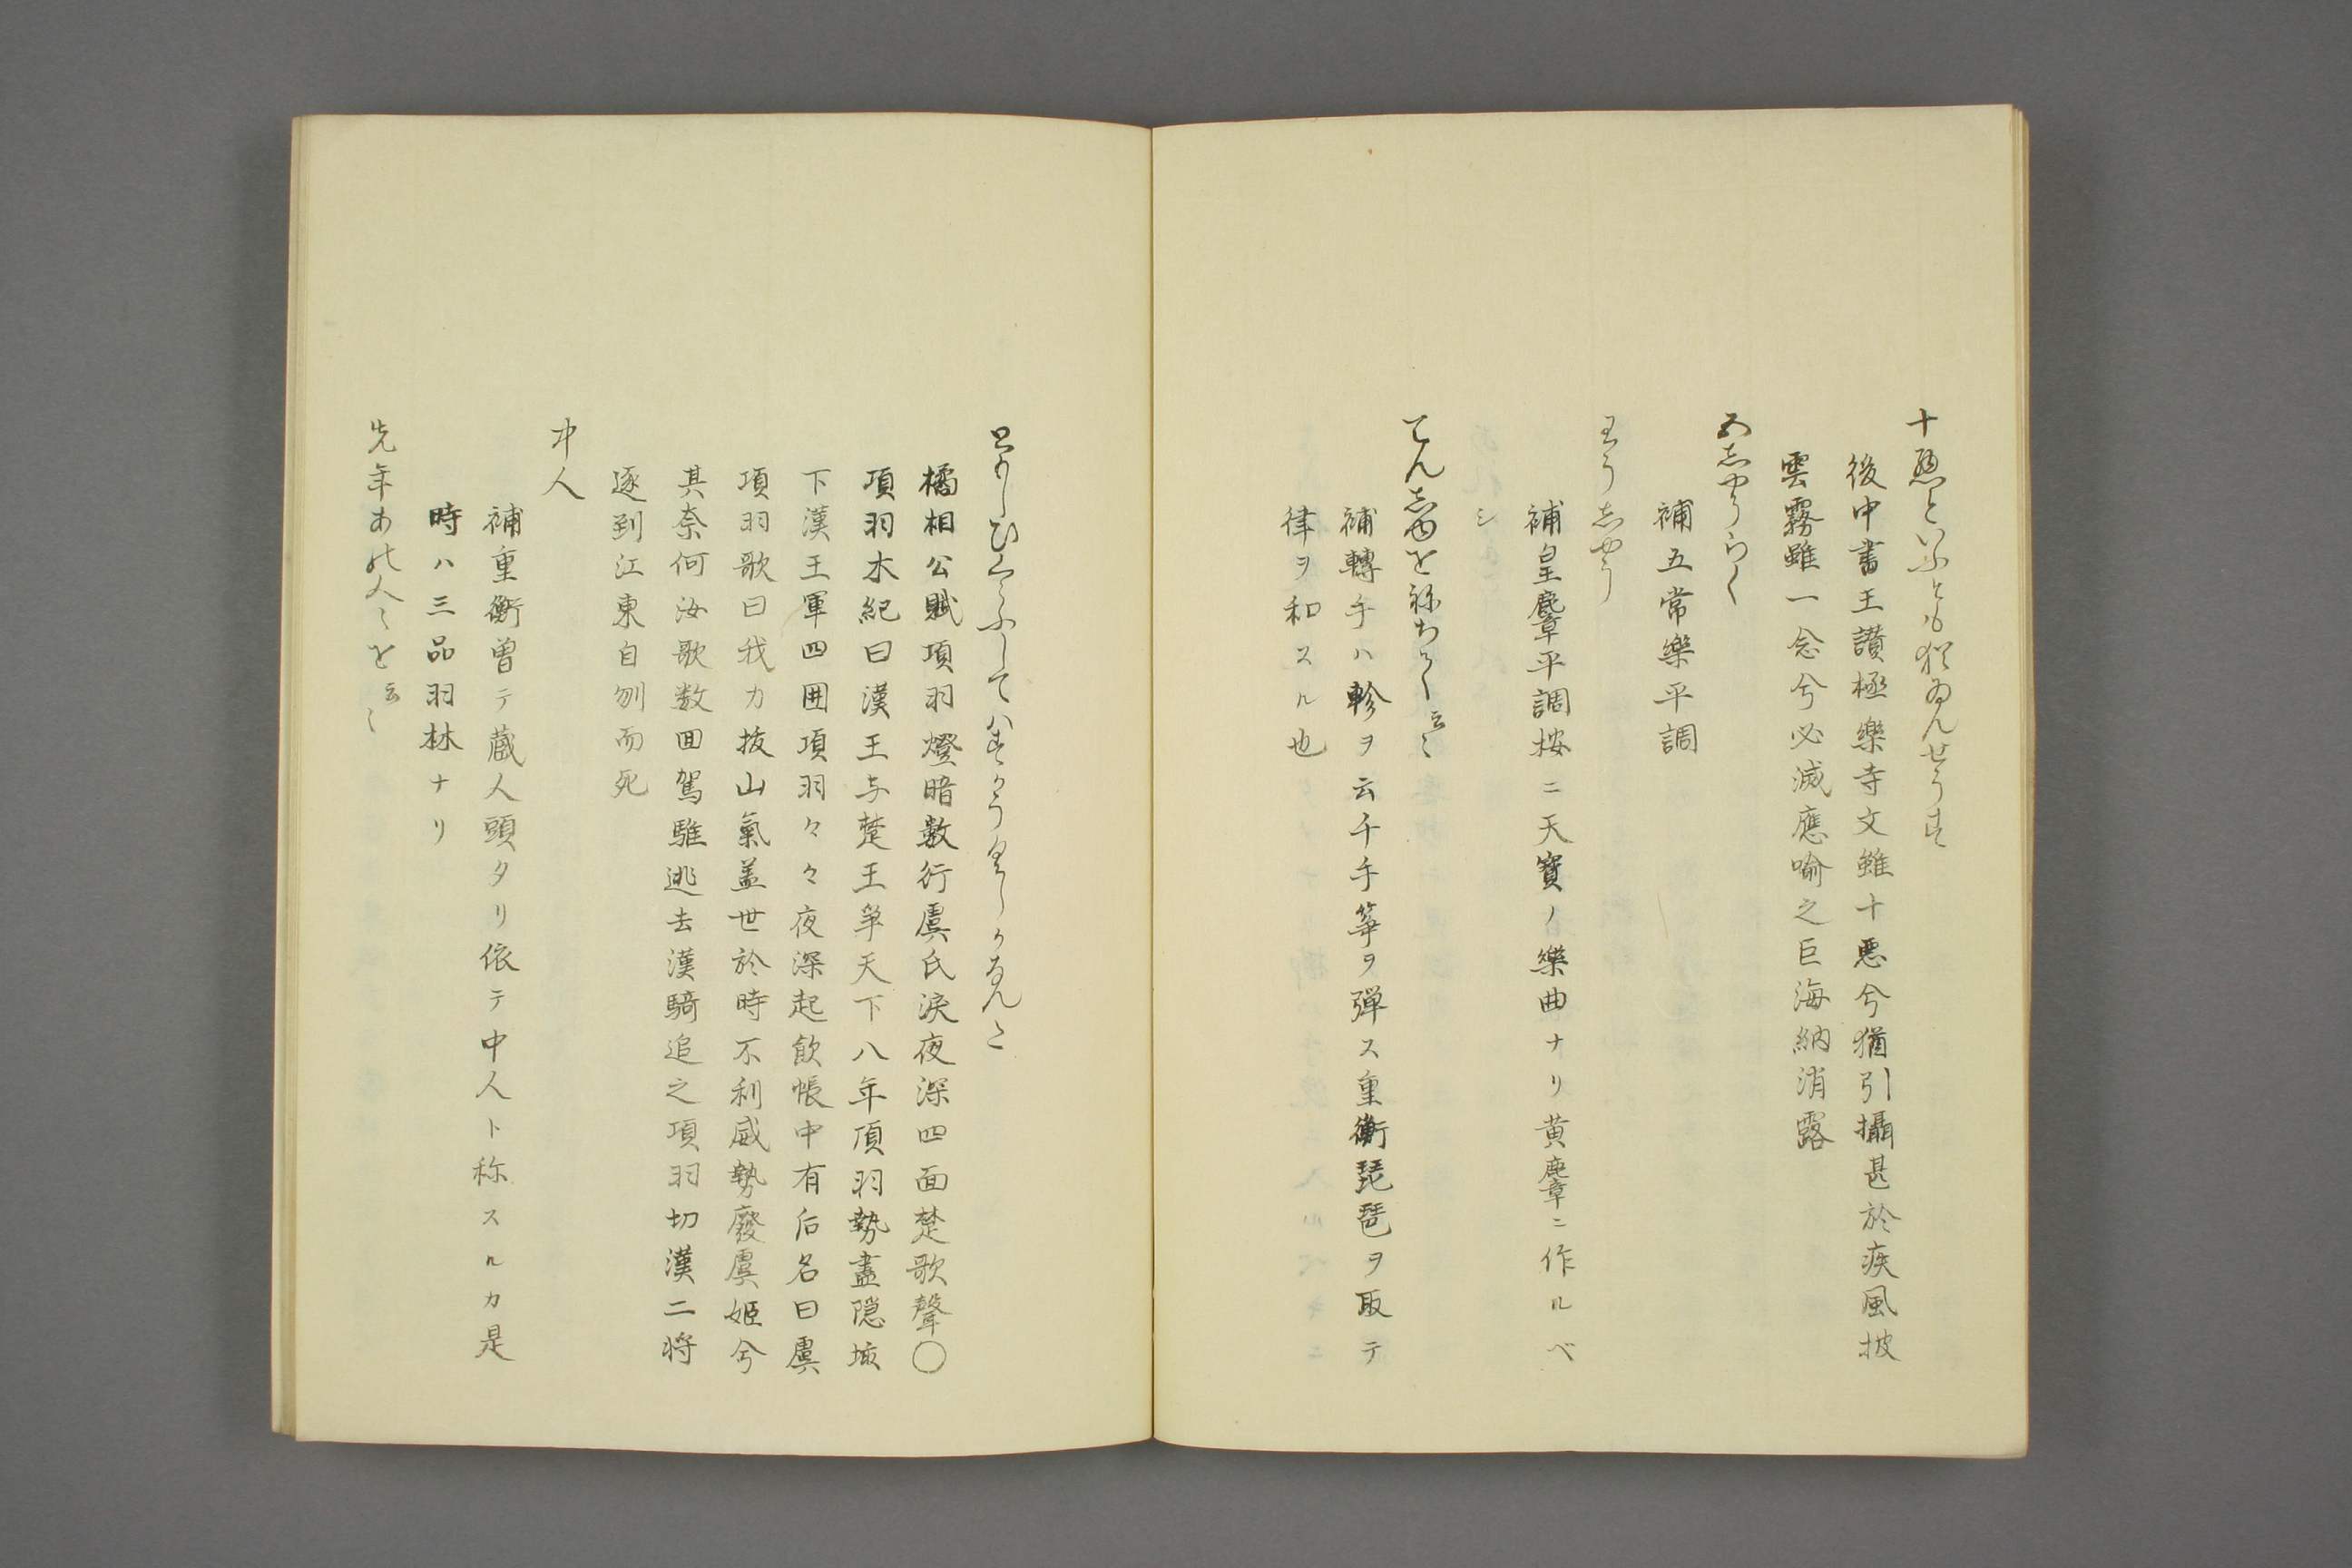 十悪といふとも猶ゐんせうす
後中書王讃極樂寺文雖十悪兮猶引攝甚於疾風披
雲霧雖一念兮必滅應喻之巨海納消露
五志やうらく
補五常樂平調
わう志やう
補皇麞平調桉ニ天寳ノ樂曲ナリ黄麞ニ作ルベ
シ
てん志ゆをねちて云〻
補轉手ハ軫ヲ云千手筝ヲ弾ス重衡琵琶ヲ取テ
律ヲ和スル也
ともしひくらふしてハすかうくしかなんた
橘相公賦項羽燈暗數行虞氏淚夜深四面楚歌聲〇
項羽本紀曰漢王与楚王爭天下八年項羽勢盡隠垓
下漢王軍四囲項羽々々夜深起飲帳中有后名曰虞
項羽歌曰我カ抜山氣盖世於時不利威勢廢虞姬兮
其奈何汝歌数囬駕騅逃去漢騎追之項羽切漢二将
逐到江東自刎而死
中人
補重衡曽テ蔵人頭タリ依テ中人ト称スルカ是
時ハ三品羽林ナリ
先年あの人〻を云〻